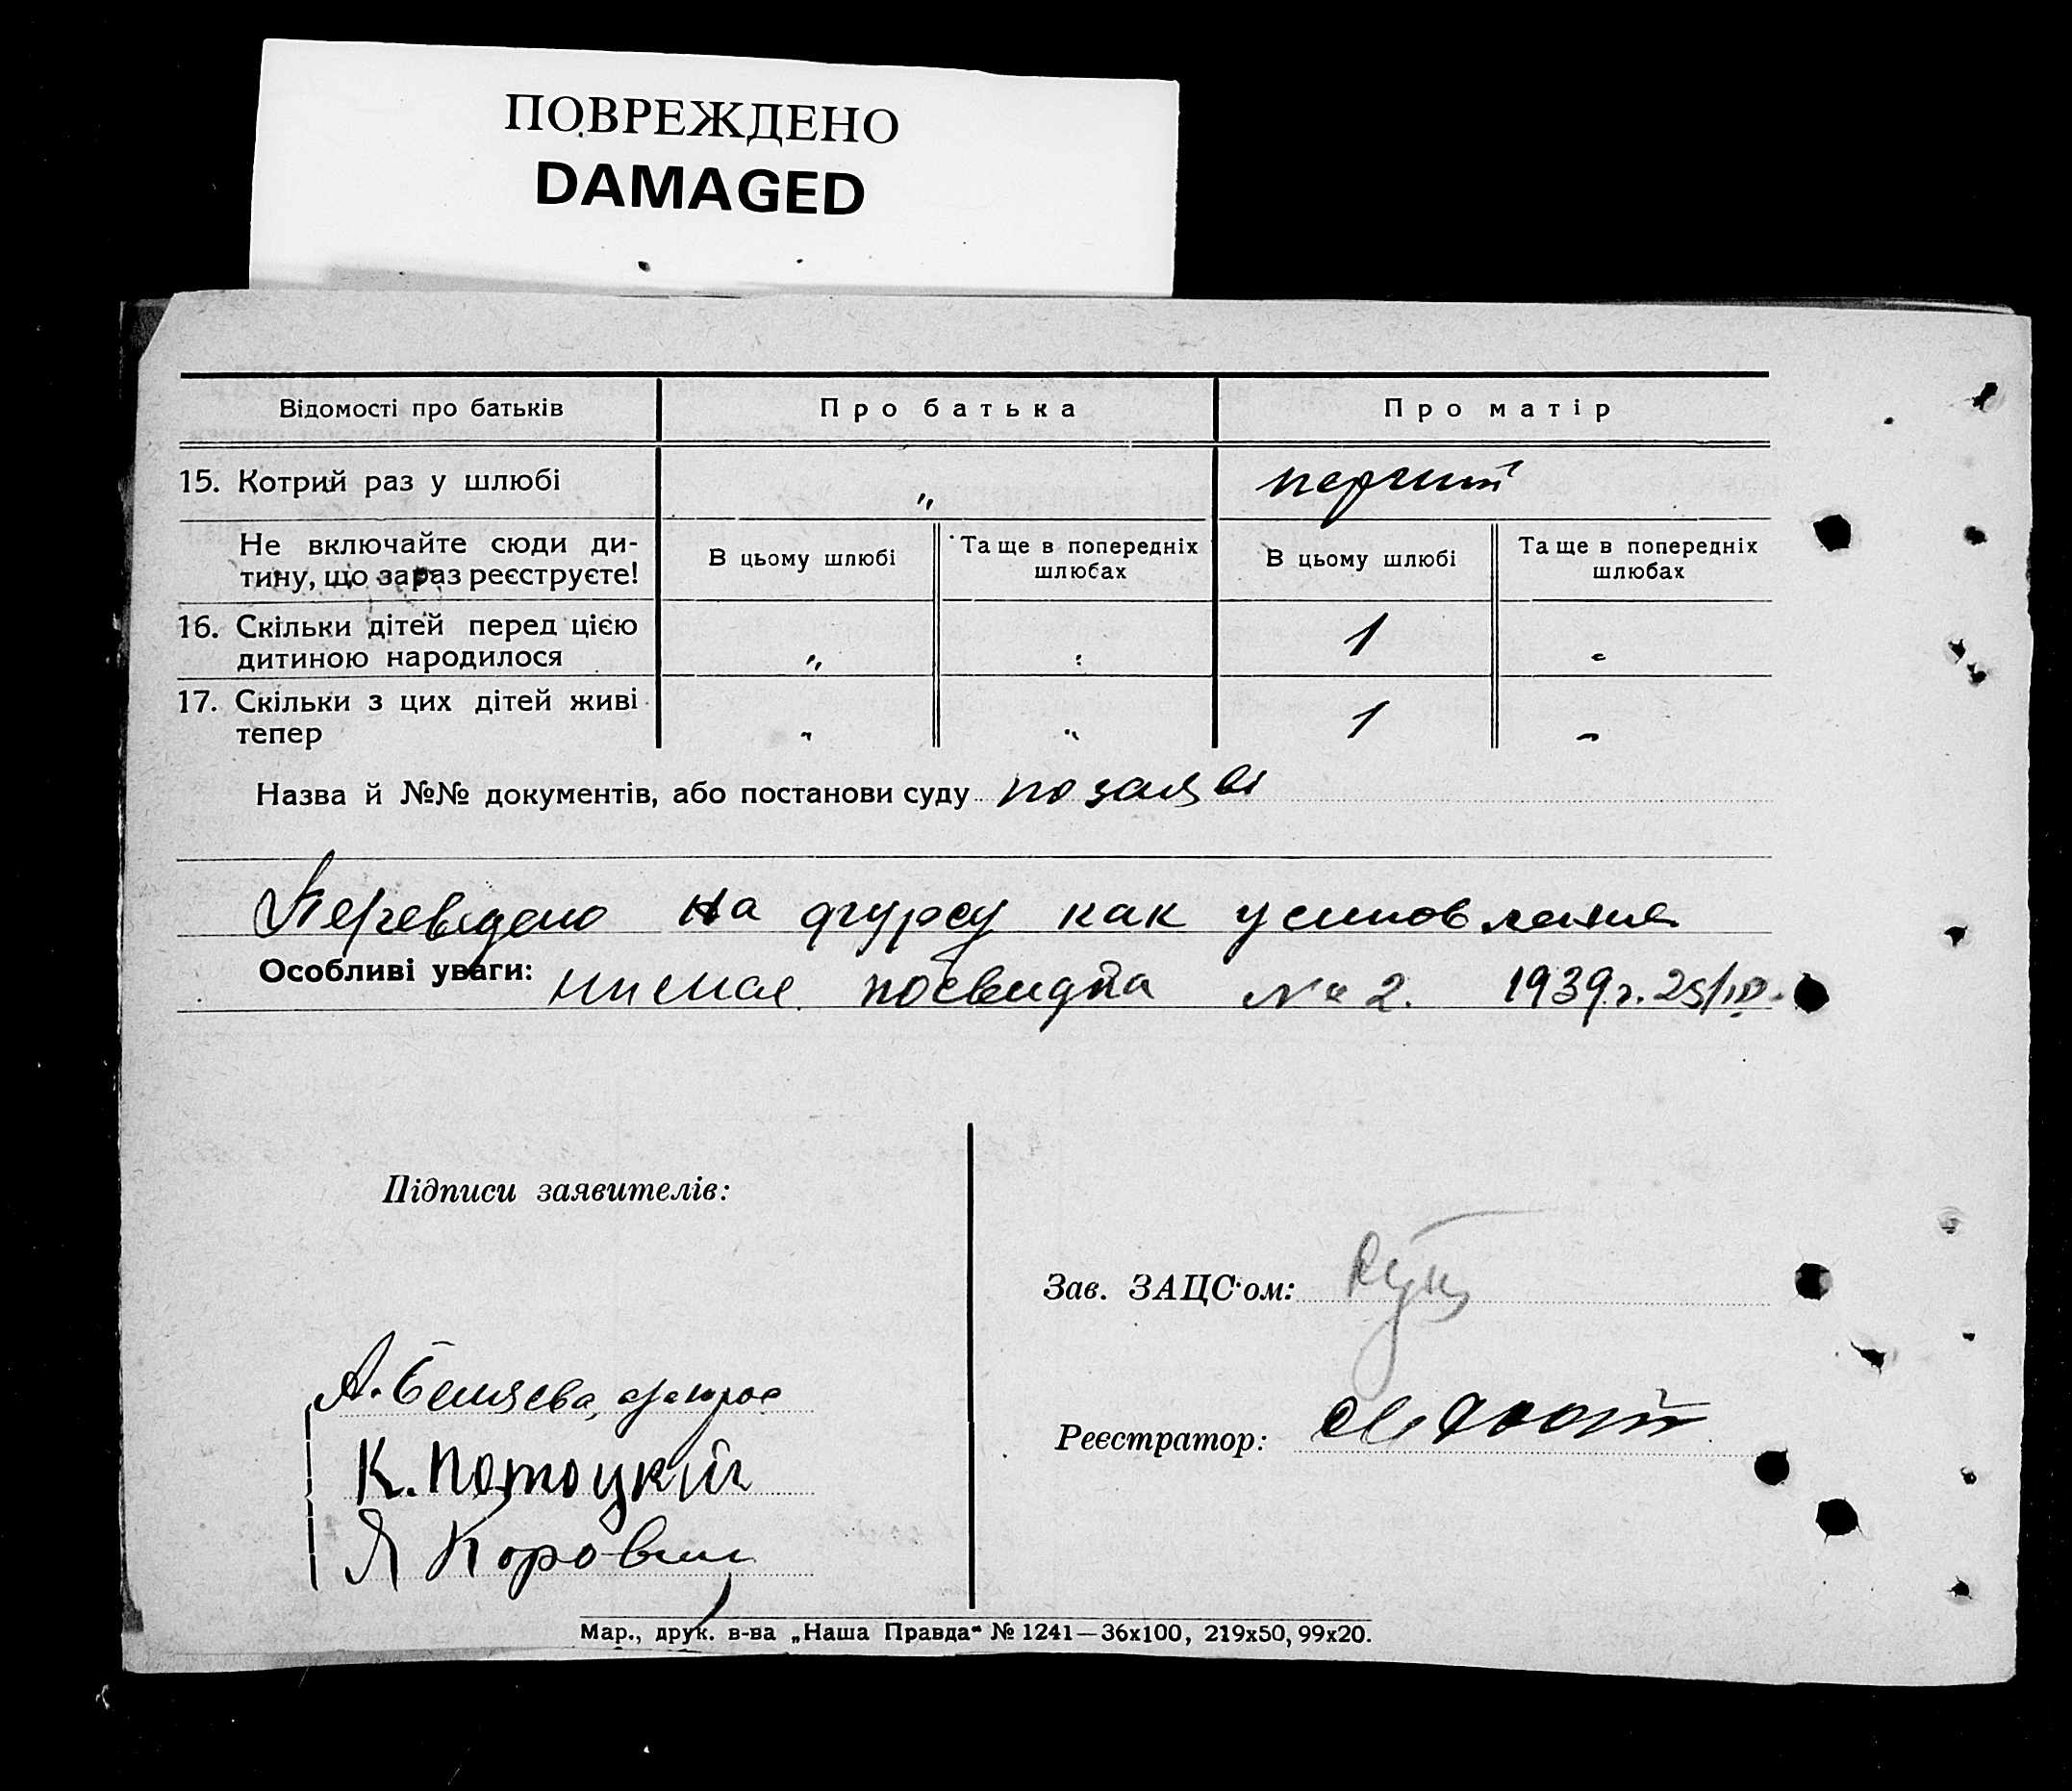 ПОВРЕЖДЕНО
DAMAGED
Відомості про батьків
Про батька
Про матір
15. Котрий раз у шлюбі
„
перший
Не включайте сюди ди-
тину, що зараз реєструєте!
В цьому шлюбі
Та ще в попередніх
шлюбах
В цьому шлюбі
Та ще в попередніх
шлюбах
16. Скільки дітей перед цією
дитиною народилося
1
17. Скільки з цих дітей живі
тепер
1
Назва й №№ документів, або постанови суду по заяві
на как
Особливі уваги: № 2. 1939 г.
Підписи заявителів:
Зав. ЗАЦС'ом:
А. Беляева,
К. Потоцкий
Реєстратор:
Я Коровин
Мар., друк. в-ва „Наша Правда" № 1241—36х100, 219х50, 99х20.